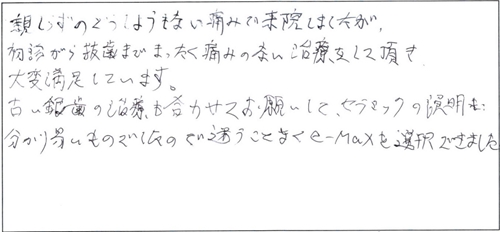 親しらずのどうしようもない痛みで来院しましたが、
初診から抜歯までまったく痛みのない治療をして頂き
大変満足しています。
古い銀歯の治療も合わせてお願いして、セラミックの説明も
分かり易いものでしたので迷うことなくe-Maxを選択できました